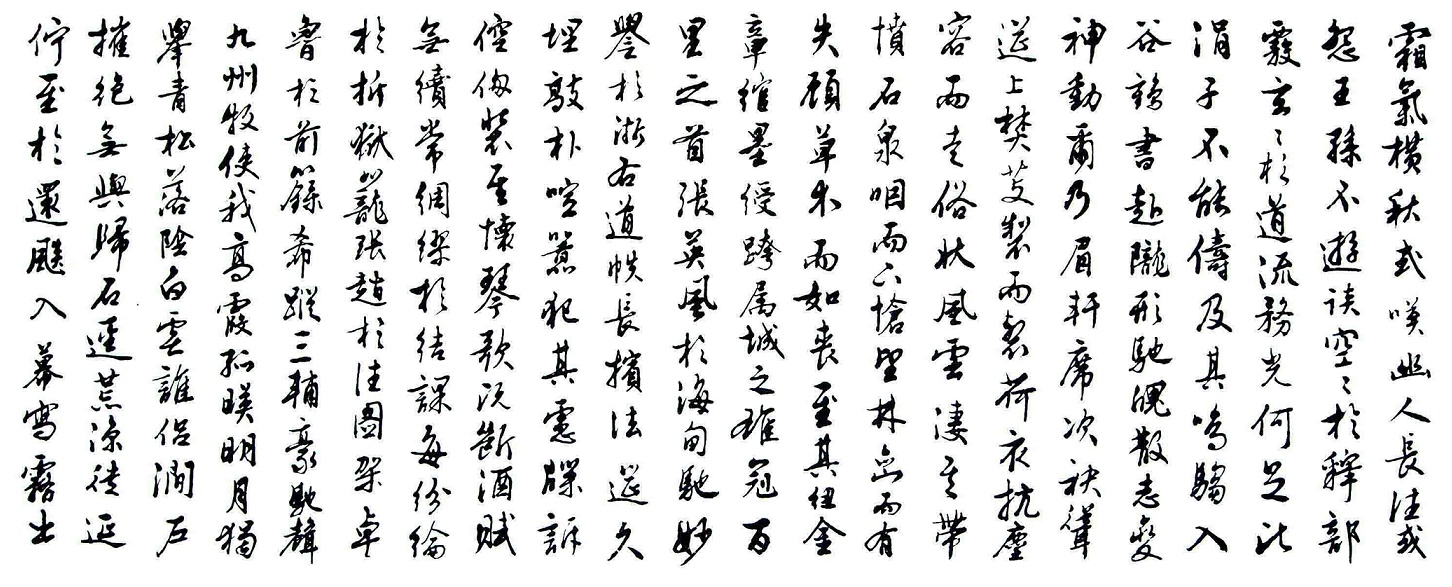 霜氣橫秋或嘆幽人長往或
怨王孫不遊談空々於釋部
覈玄々於道流務光何足比
涓子不能儔及其鳴騶入
谷鶴書赴隴形馳魄散志變
神動爾乃眉軒席次袂聳
筵上焚芰製而裂荷衣抗塵
容而走俗狀風雲凄其帶
憤石泉咽而下愴望林巒而有
失顧草木而如喪至其紐金
章綰墨綬跨属城之雄冠百
里之首張英風於海甸馳妙
譽於浙右道帙長擯法筵久
埋敲扑喧囂犯其慮牒訴
倥傯裝其懷琴歌既斷酒賦
無續常綢繆於結課每紛綸
於折獄籠張趙於往圖架卓
魯於前籙希蹤三輔豪馳聲
九州牧使我高霞孤映明月獨
舉青松落陰白雲誰侶澗石
摧絕無與歸石逕荒涼徒延
佇至於還飈入幕寫霧出